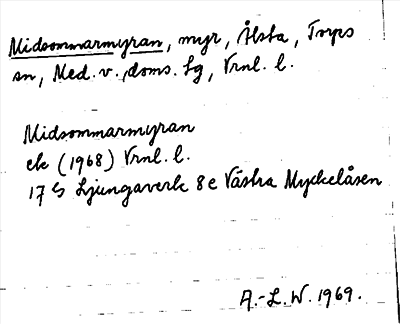 Midsommarmyran, myr, Ålsta, Torps
sn, Med. v. doms. Lg, Vrnl. l.
Midsommarmyran
ek (1968) Vrnl. l.
17 G Ljungaverk 8 e Västra Myckelåsen
A.-L. W. 1969.